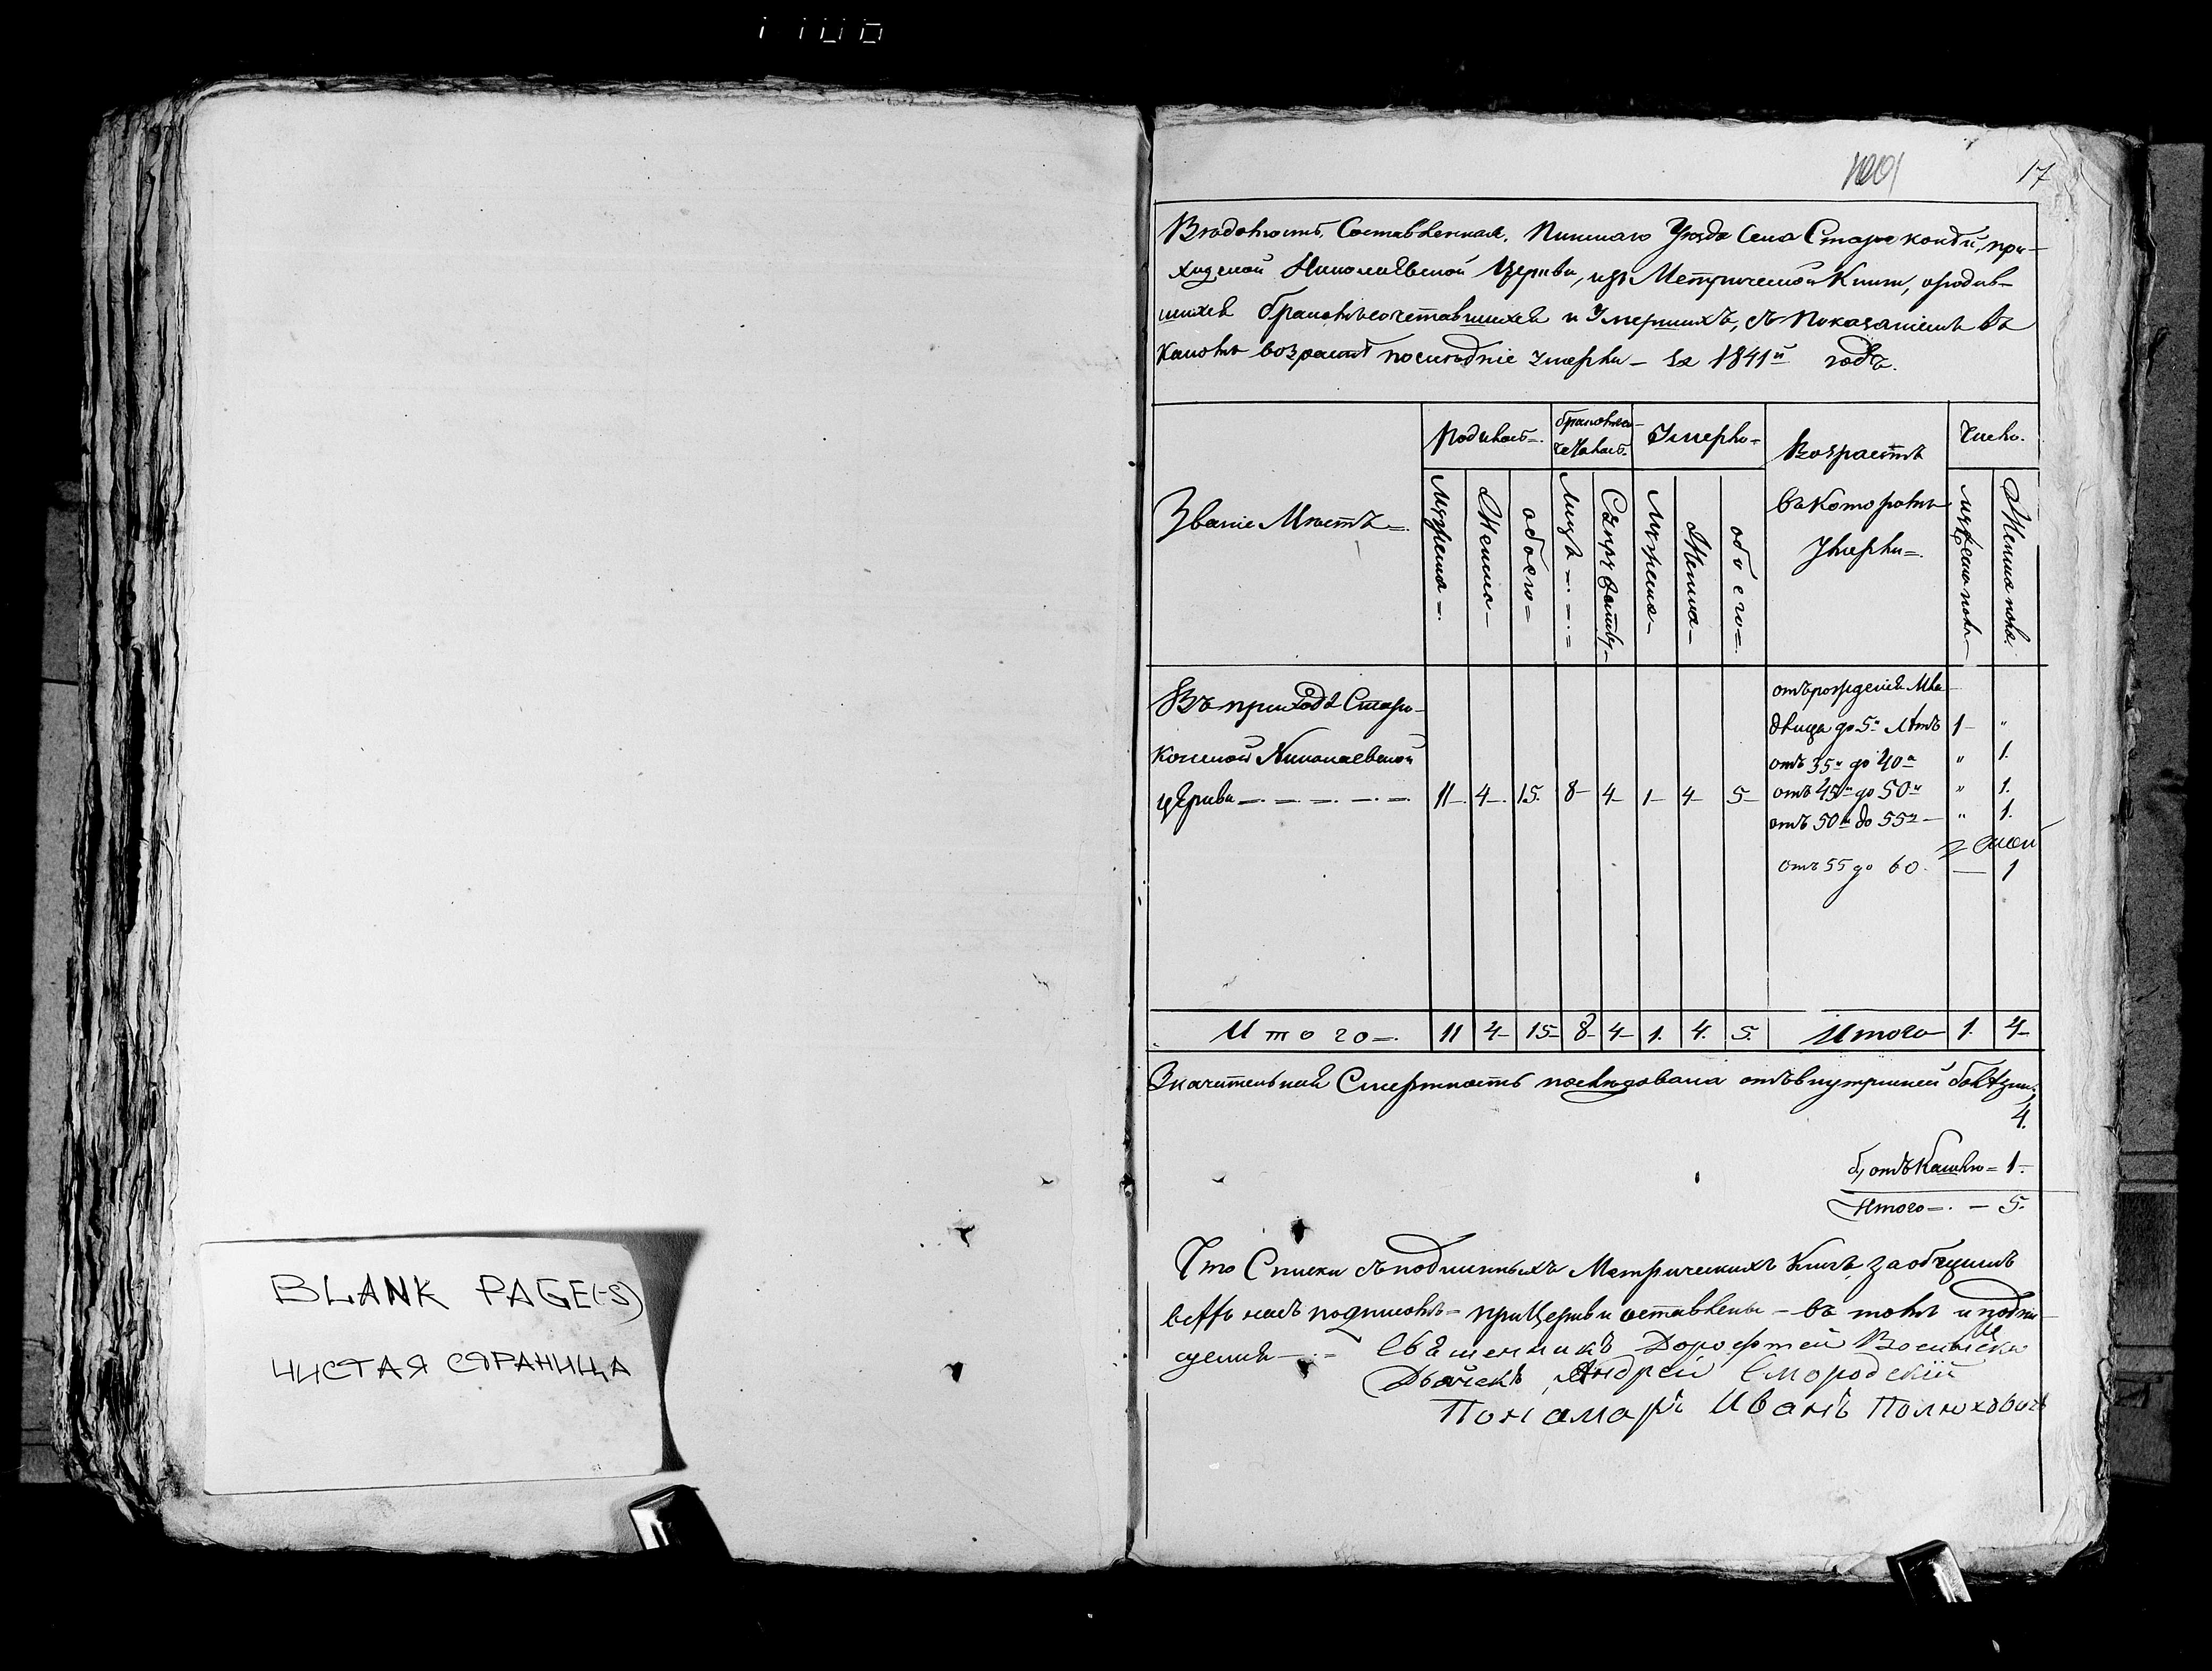 17
Вѣдомость, Составленная, Пинскаго Уѣзда Села Старо конди, при-
ходской Николаевской Церкви, изъ Метрической Книги, ородив-
шихся бракомъ сочетавшихся и Умершихъ, съ Показаніемъ въ
Какомъ возрастѣ последніе умерли – за 1841й годъ.
Званіе Мѣстъ
Родилось
бракомъ со-
четалось
Умерло
Возрастъ
въ Которомъ
Умерли
Число
Мужеска
Женска
обоего
Лицъ
Супружествъ
Мужеска
Женска
обоего
Мужеска пола
Женска пола
Въ приходѣ Старо-
конской Николаевской
церкви 11 4 15. 8 4 1 4 5
отъ рожденія Мла-
денца до 5и Лѣтъ 1 "
отъ 35и до 40а " 1.
отъ 45и до 50и " 1.
отъ 50и до 55и " 1.
отъ 55 до 60. — 1
Итого 11 4 15 8 4 1. 4. 5. Итого 1. 4
Значительная Смертность последовала отъ внутренней болезни,
4.
б, отъ Кашлю = 1
Итого — 5.
Что Списки съ подлинныхъ Метрическихъ Книгъ за общимъ
всѣхъ насъ подписомъ при Церкви оставлены – въ томъ и подпи-
суемся
Священникъ Дорофтей
Дьячекъ Андрей Смородскій
Понамарь Иванъ Полюховичъ
BLANK PAGE(-S)
ЧИСТАЯ СТРАНИЦА